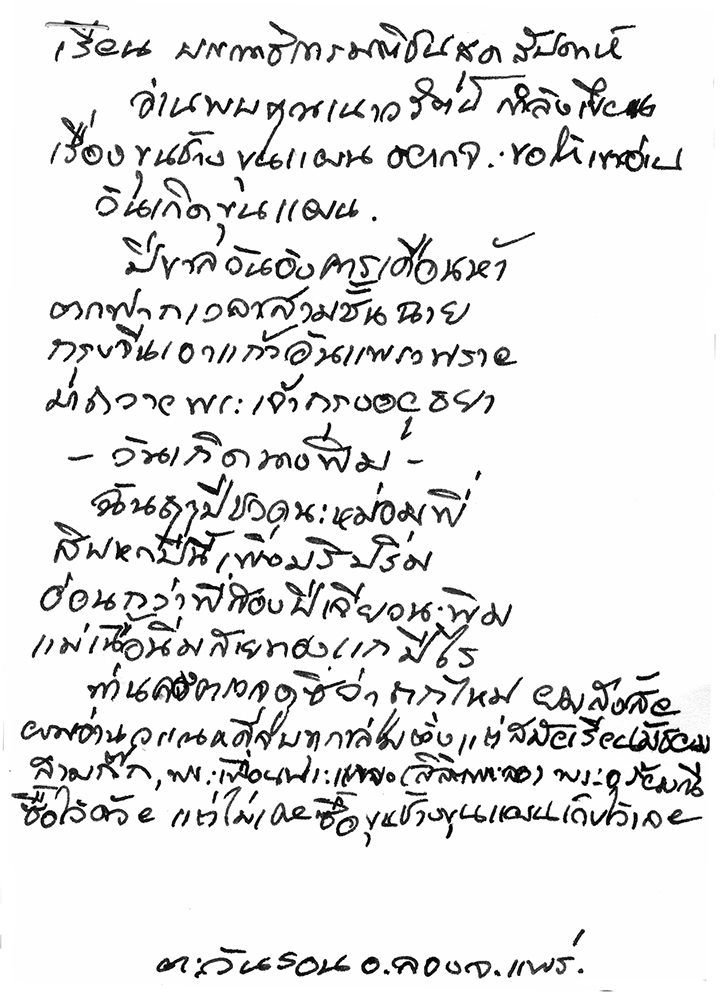 เรียน บรรณาธิการมติชนสุดสัปดาห์
อ่านพบคุณเนาวรัตน์ กำลังเขียน
เรื่องขุนช้างขุนแผน อยากจะขอให้เขา
วันเกิดขุนแผน.
ปีขาลวันอังคารเดือนห้า
ตกฟากเวลาสามชั้นฉาย
กรุงจีนเอาแก้วอันแพรวพราย
มาถวายพระเจ้ากรุงอยุธยา
- วันเกิดนางพิม -
ฉันดูปีชวดนะหม่อมพี่
สิบหกปีนี้เพิ่งปริบปริ่ม
อ่อนกว่าพี่สองปีเจียวนะพิม
แม่เนื้อนิ่มสายทองแกปีไร
ท่านลองตรวจดูซิว่าถูกไหม ผมสงสัย
ผมอ่านวรรณคดีตั้งแต่สมัยเรียนมัธยม
สามก๊ก, พระเพื่อนพระแพง (ลิลิตพระลอ) พระอภัยมณี
ซื้อไว้ด้วย แต่ไม่เคยซื้อขุนช้างขุนแผนเก็บไว้เลย
ตะวันรอน อ.ลอง จ.แพร่.